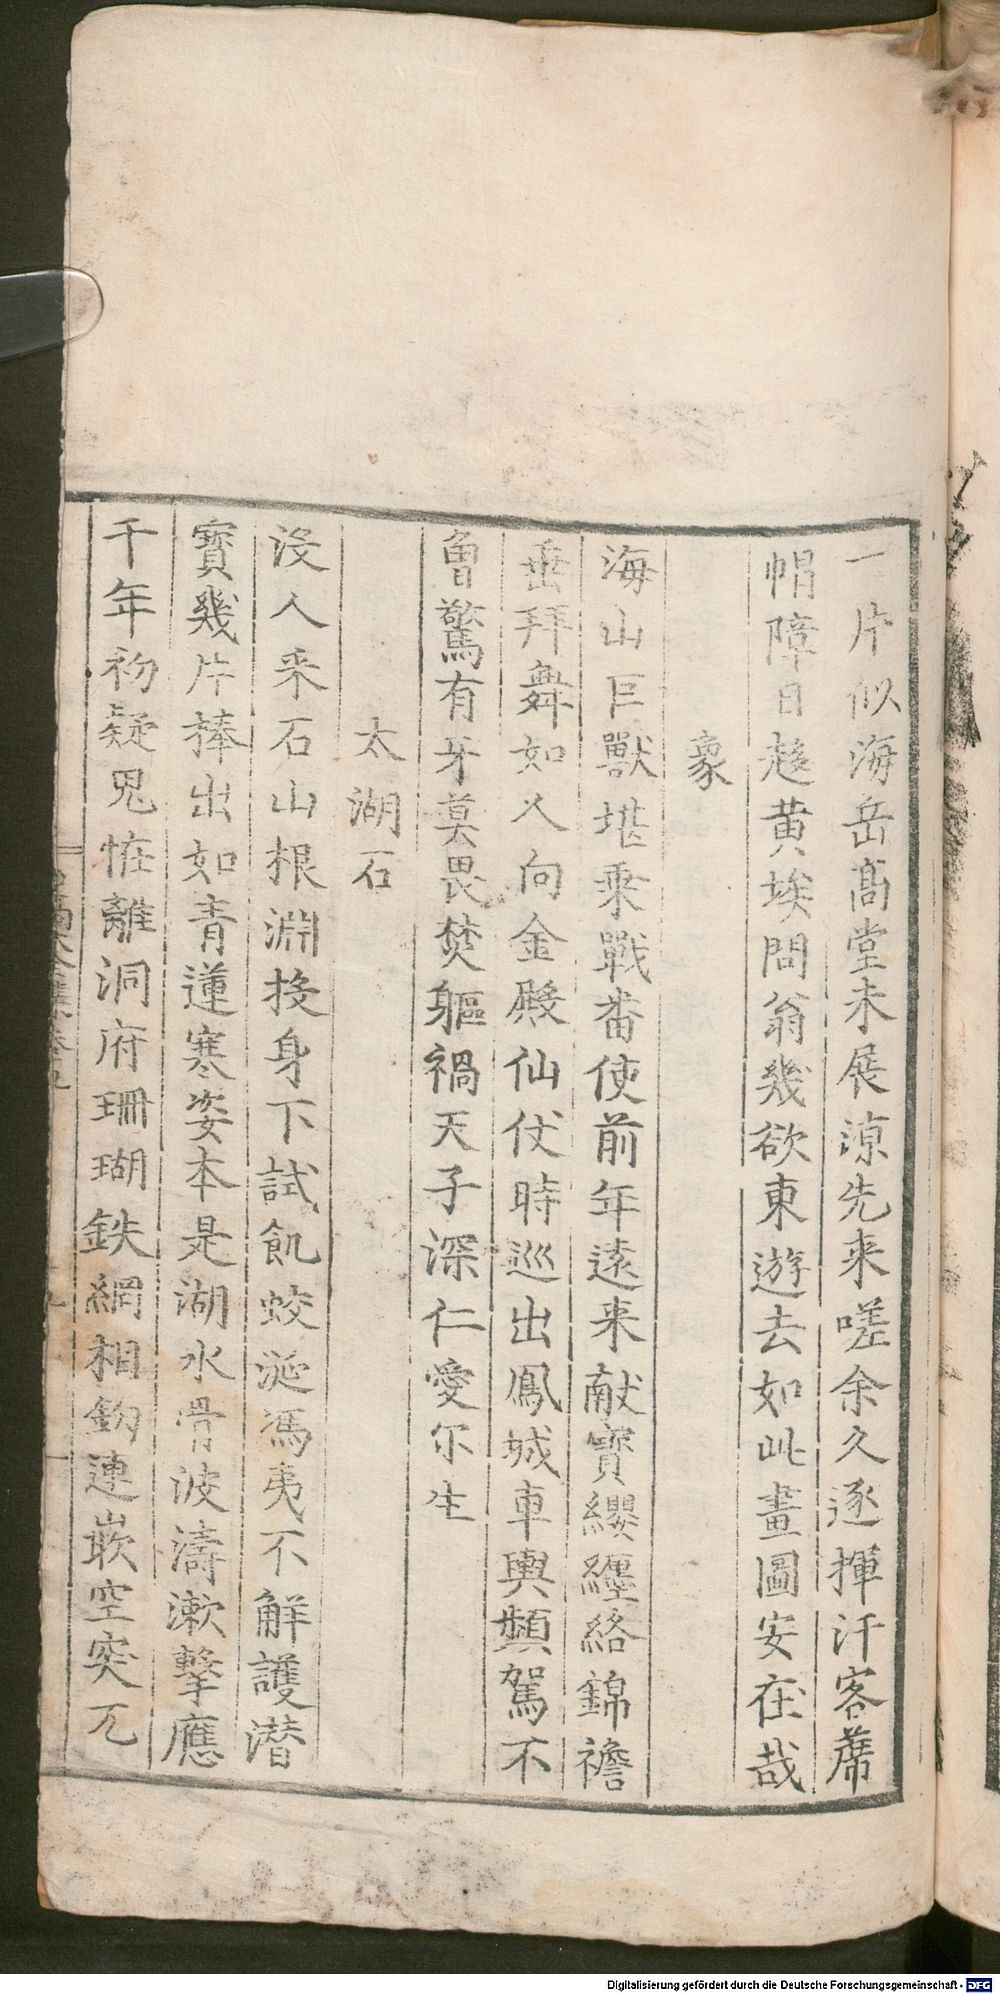 一片似海岳高堂未展涼先来嗟余久逐揮汗客蓆
帽障日趍黄埃問翁幾欲東遊去如此畫圖安在哉
象
海山巨獸堪乘戰畨使前年遠来献寳纓纏絡錦襜
垂拜舞如人向金殿仙仗時巡出鳳城車輿頻駕不
曽驚有牙莫畏焚軀禍天子深仁愛尔生
太湖石
没人采石山根淵投身下試飢蛟涎馮夷不觧護潜
寳幾片捧出如青蓮寒姿本是湖水骨波濤漱擊應
千年初疑鬼恠離洞府珊瑚鉄網相鈎連嵌空突兀
Digitalisierung gefördert durch die Deutsche Forschungsgemeinschaft - DFG